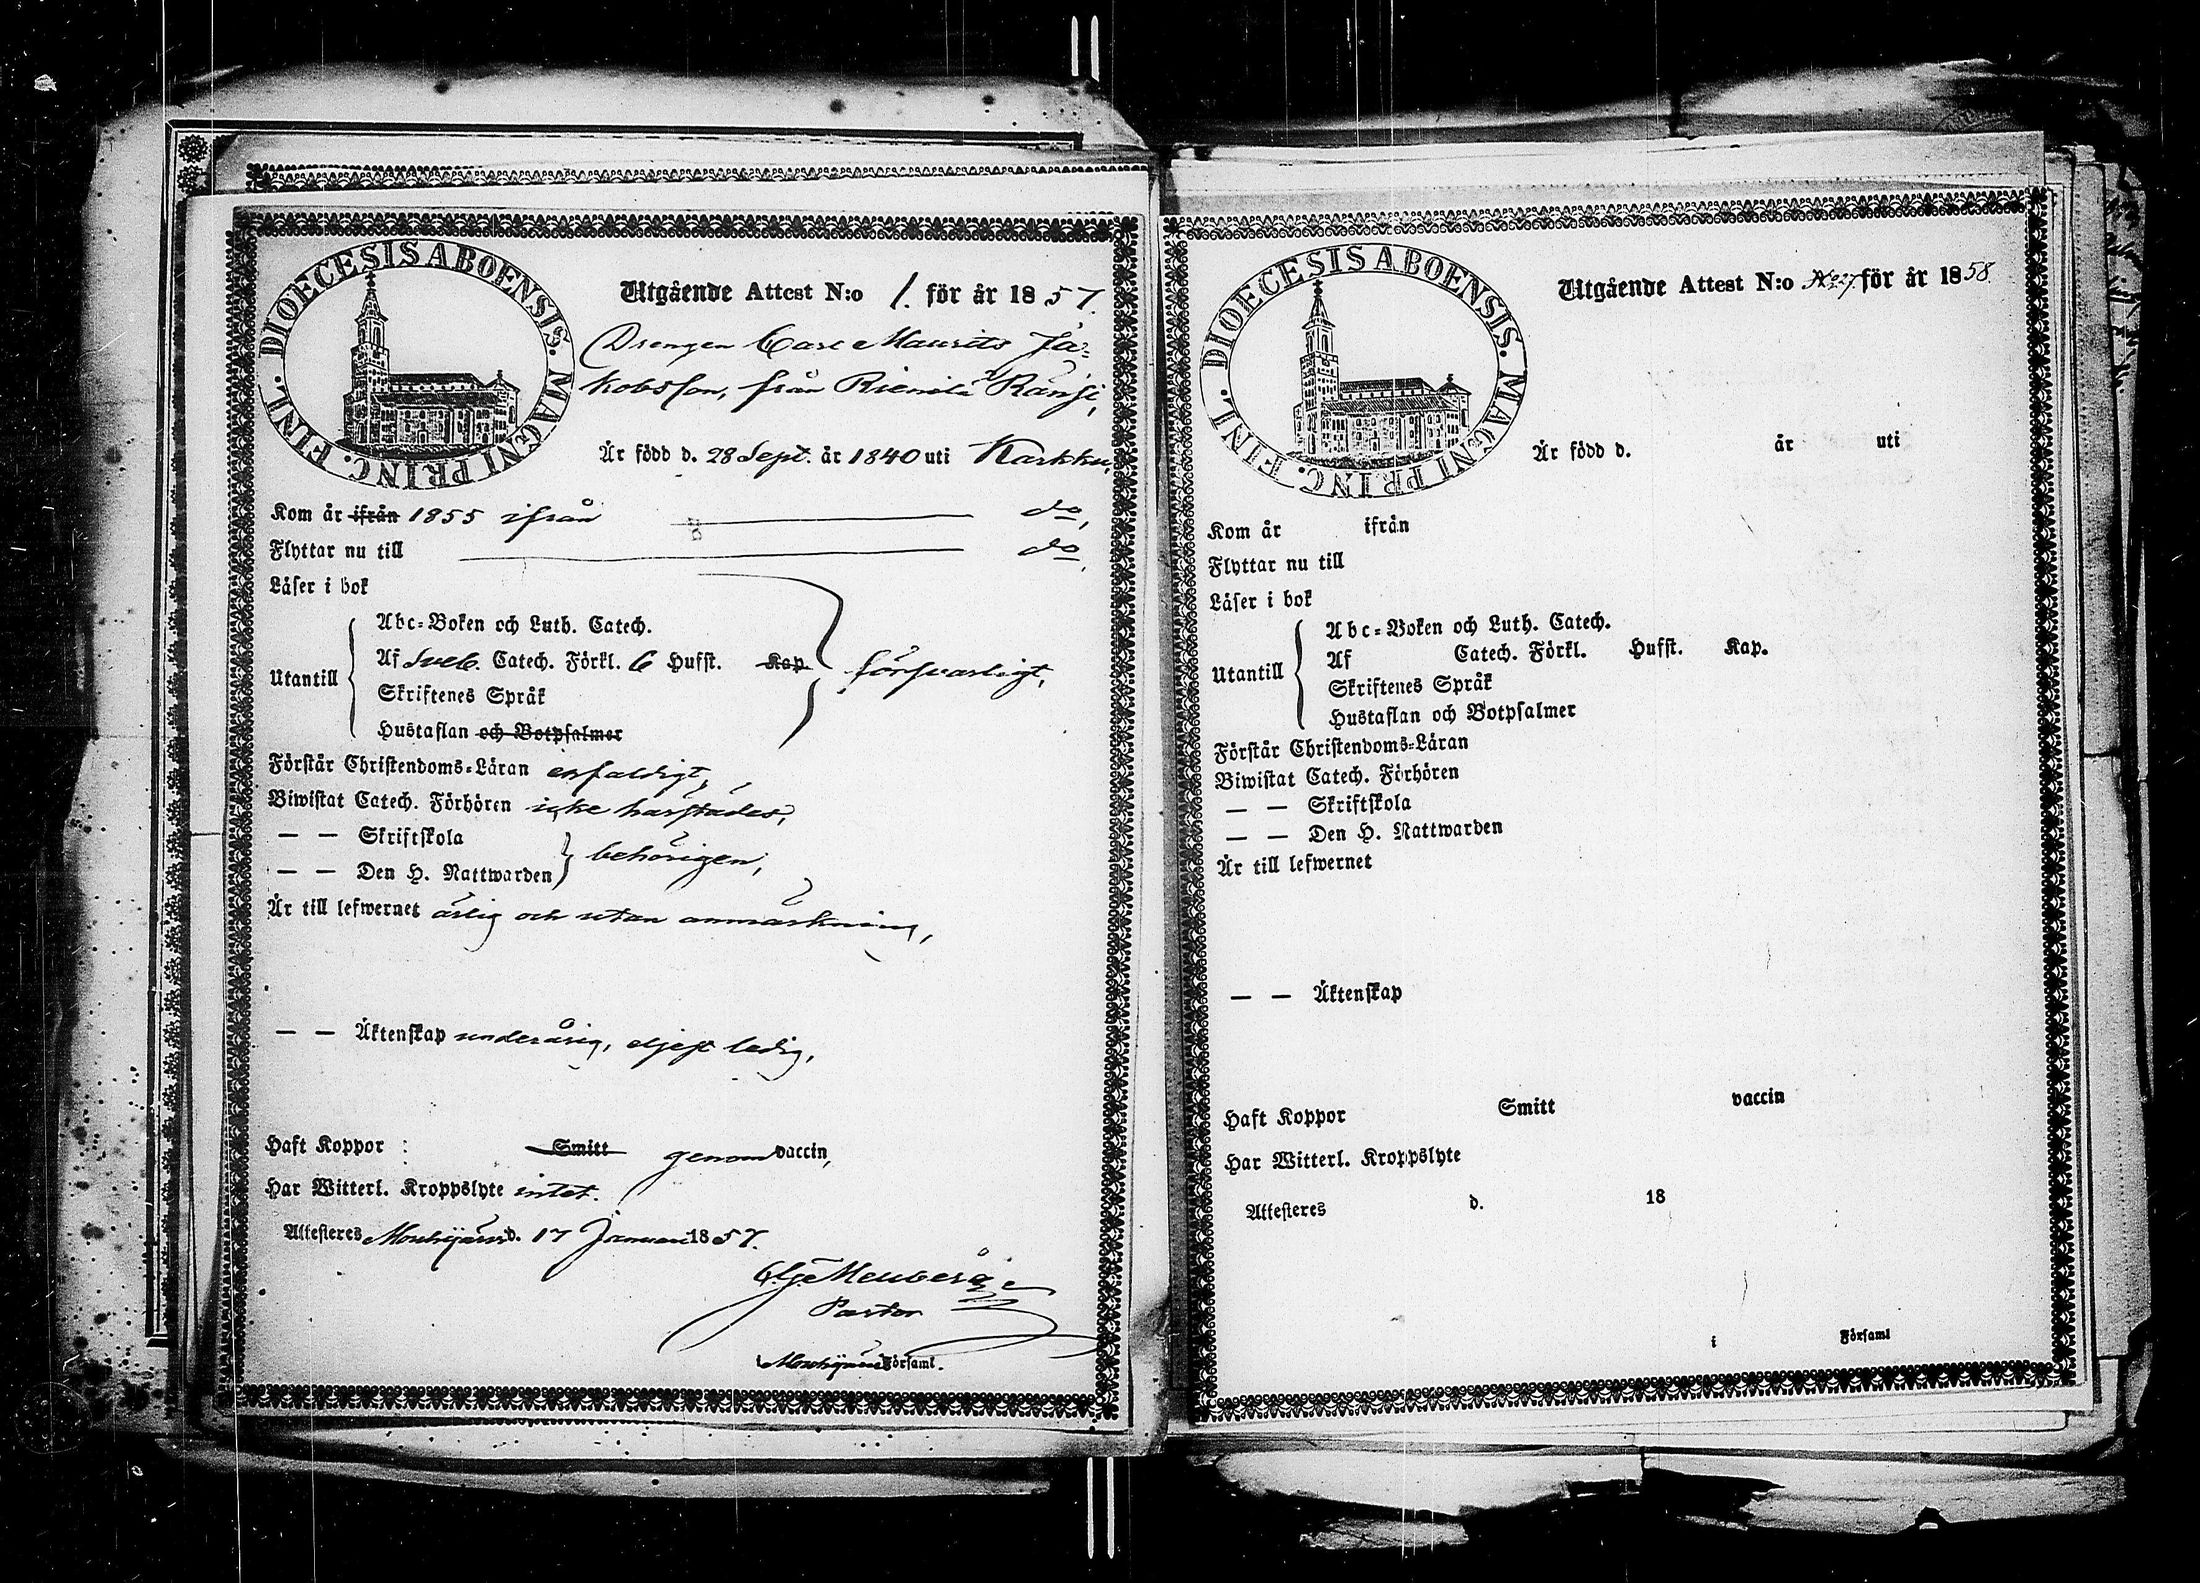 DIOECESIS ABOENSIS. MAGNI PRINC. FINL.
Utgående Attest N:o 1. för år 1857.
Drengen Carl Maurits Ja-
kobsson, från Riemilä Ränsi,
Är född d. 28 Sept. år 1840 uti Karkku,
Kom år ifrån 1855 ifrån do,
Flyttar nu till do,
Läser i bok
Utantill
Abc-Boken och Luth. Catech.
Af Sveb. Catech. Förkl. 6 Hufst. Kap
Skriftenes Språk
Hustaflan och Botpsalmer
försvarligt,
Förstår Christendoms-Läran enfaldigt,
Biwistat Catech. Förhören icke härstädes,
— — Skriftskola
— — Den H. Nattwarden
behörigen,
Är till lefwernet ärlig och utan anmärkning,
— — Äktenskap underårig, ledig,
Haft Koppor : Smitt genom vaccin,
Har Witterl. Kroppslyte intet.
Attesteres Mouhijärvi d. 17 Januari 1857.
Pastor
i Mouhijärvi Församl.
DIOECESIS ABOENSIS. MAGNI PRINC. FINL.
Utgående Attest N:o för år 1858.
Är född d. år uti
Kom år ifrån
Flyttar nu till
Läser i bok
Utantill
Abc-Boken och Luth. Catech.
Af Catech. Förkl. Hufst. Kap.
Skriftenes Språk
Hustaflan och Botpsalmer
Förstår Christendoms-Läran
Biwistat Catech. Förhören
— — Skriftskola
— — Den H. Nattwarden
Är till lefwernet
— — Äktenskap
Haft Koppor Smitt vaccin
Har Witterl. Kroppslyte
Attesteres d. 18
i Församl